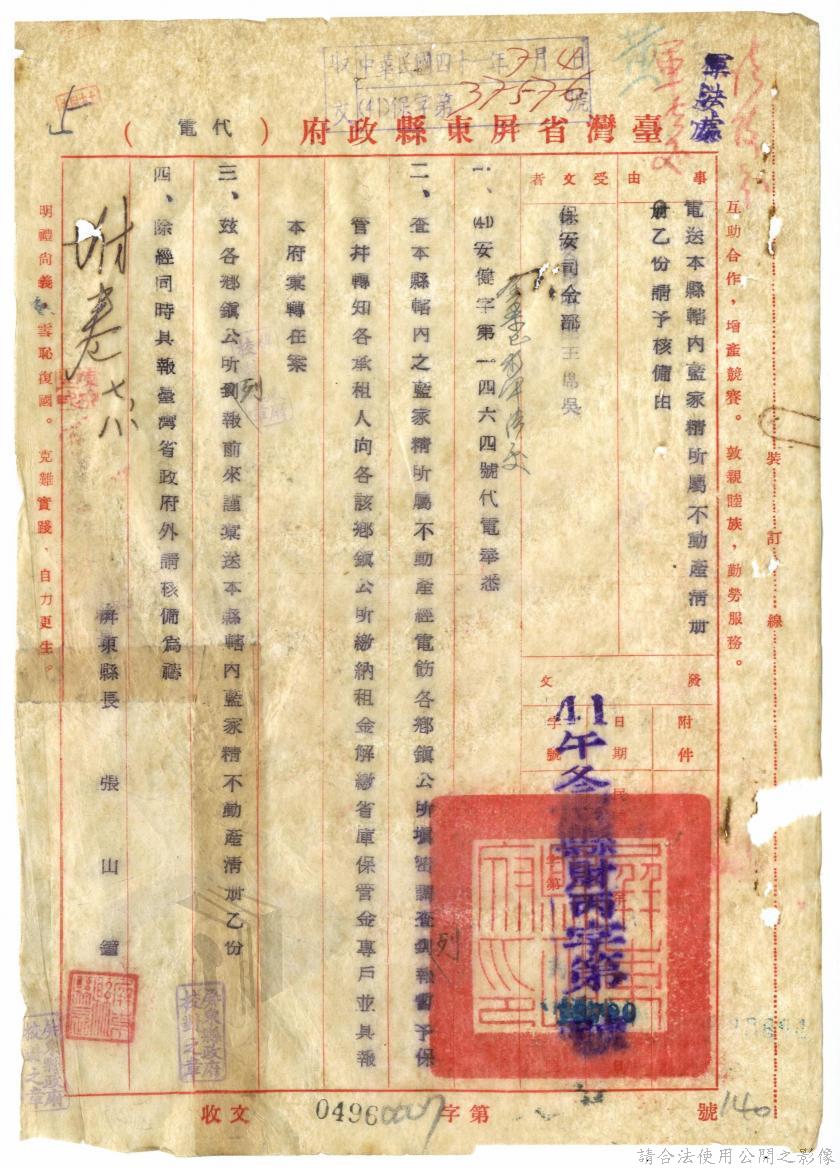 收 中華民國四十一年7月4日
文 (41)保字第37576號
軍法處
臺灣省屏東縣政府（代電）
互助合作，增產競賽。敦親睦族，勤勞服務。
裝訂線
事由
電送本縣轄內藍家精所屬不動產清册
乙份請予核備由
受文者
保安司令部主席吳
附件
發文
日期
字號
41午冬
縣財丙字第
號
一、(41)安健字第一四六四號代電奉悉
二、查本縣轄內之藍家精所屬不動產經電飭各鄉鎮公所填密調查列報暫予保
管并轉知各承租人向各該鄉鎮公所繳納租金解繳省庫保管金專戶並具報
本府彙轉在案
三、玆各鄉鎮公所列報前來謹彙送本縣轄內藍家精不動產清册乙份
四、除經同時具報臺灣省政府外請核備為禱
屏東縣長 張山鐘
附卷 七、八
明禮尚義，雪恥復國。克難實踐，自力更生。
屏東縣政府
校對之章
屏東縣政府
校對之章
收文 字第 號
0496
140
請合法使用公開之影像